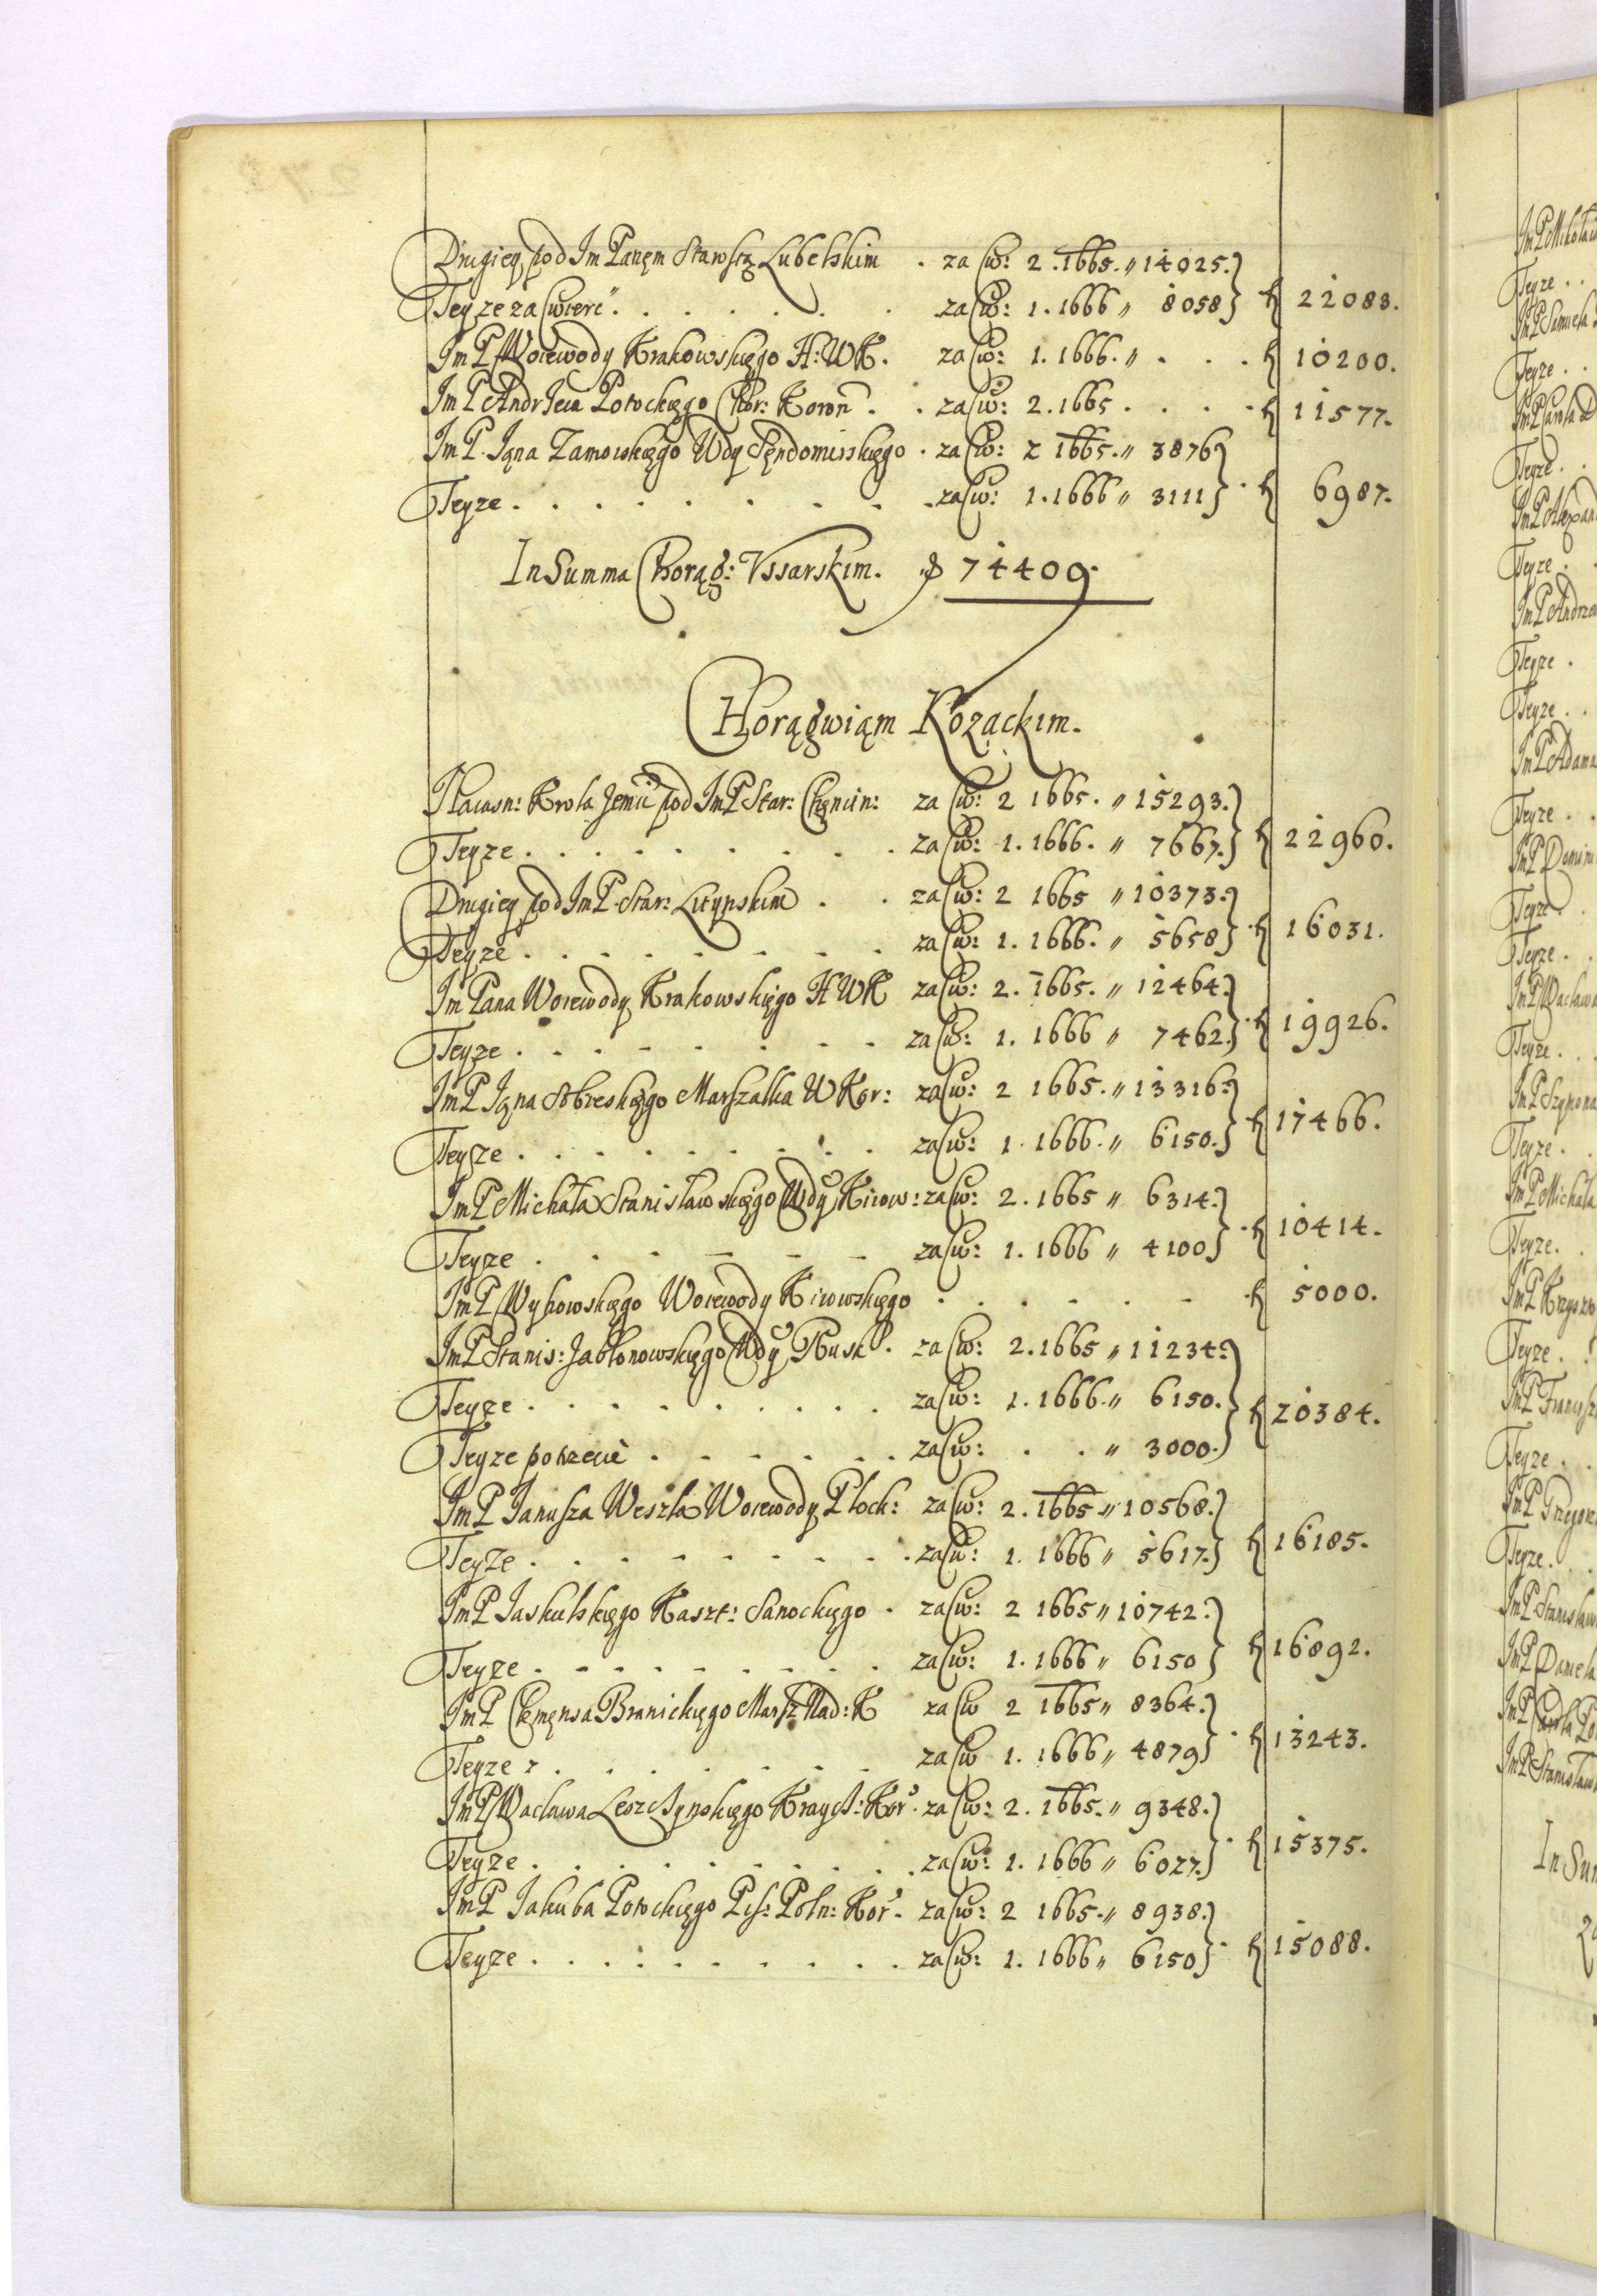 Drugiey pod Im Panem Starostą Lubelskim . za Cw: 2. 1665. „ 14025.
Teyze za Cwierć . . . . . . . za Cw: 1. 1666 „ 8058 } f 22083.
Im P Woiewody Krakowskiego H: W K. za Cw: 1. 1666. „ . . . f 10200.
Im P Andrzeia Potockiego Chor: Koron . . za Cw: 2. 1665 . . . . f 11577.
Im P. Jana Zamoiskiego Wdy Sendomirskiego . za Cw: 2 1665. „ 3876
Teyze . . . . . . . . . za Cw: 1. 1666 „ 3111 } . f 6987.
In Summa Chorąg: Vssarskim. f 74409.
Chorągwiąm Kozackim.
Własn: Krola Jemci pod Im P Star: Chencin: za Cw: 2 1665. „ 15293.
Teyze . . . . . . . . . za Cw: 1. 1666. „ 7667. } f 22960.
Drugiey pod Im P. Star: Litynskim . . za Cw: 2 1665 „ 10373.
Teyze . . . . . . . . . za Cw: 1. 1666. „ 5658 } . f 16031.
Im Pana Woiewody Krakowskiego H W K za Cw: 2. 1665. „ 12464.
Teyze . . . . . . . . . za Cw: 1. 1666 „ 7462. } . f 19926.
Im P Jana Sobieskiego Marszałka W Kor: za Cw: 2 1665. „ 13316.
Teyze . . . . . . . . . za Cw: 1. 1666. „ 6150. } f 17466.
Im P Michała Stanisławskiego Wdy Kiiow: za Cw: 2. 1665 „ 6314.
Teyze . . . . . . . za Cw: 1. 1666 „ 4100 } . f 10414.
Im P Wyhowskiego Woiewody Kiiowskiego . . . . . . . f 5000.
Im P Stanis: Jabłonowskiego Wdy Rusk. za Cw: 2. 1665 „ 11234.
Teyze . . . . . . . . . za Cw: 1. 1666. „ 6150.
Teyze potrzecie . . . . . . za Cw: . . „ 3000. } f 20384.
Im P Janusza Weszla Woiewody Płock: za Cw: 2. 1665 „ 10568.
Teyze . . . . . . . . . za Cw: 1. 1666 „ 5617. } f 16185.
Im P Jaskulskiego Kaszt: Sanockiego . za Cw: 2 1665 „ 10742.
Teyze . . . . . . . . . za Cw: 1. 1666 „ 6150 } f 16892.
Im P Clemensa Branickiego Marsz Nad: K za Cw 2 1665 „ 8364.
Teyze . . . . . . . . za Cw 1. 1666 „ 4879 } . f 13243.
Im P Wacława Leszczynskiego Krayc: Kor. za Cw: 2. 1665. „ 9348.
Teyze . . . . . . . . . za Cw: 1. 1666 „ 6027. } . f 15375.
Im P Jakuba Potockiego Pis: Poln: Kor. za Cw: 2 1665. „ 8938.
Teyze . . . . . . . . . za Cw: 1. 1666 „ 6150 } . f 15088.
Teyze . .
Teyze . .
Teyze . .
Teyze .
Im P Andrze
Teyze .
Teyze . .
Im P Adama
Teyze . .
Teyze .
Teyze . .
Im P Wacława
Teyze . . .
Im P Szymona
Teyze . .
Im P Michała
Teyze. .
Teyze . .
Teyze . .
Teyze. . .
Im P Stanisław
Im P Daniela
Im P Stanisław
In Sum